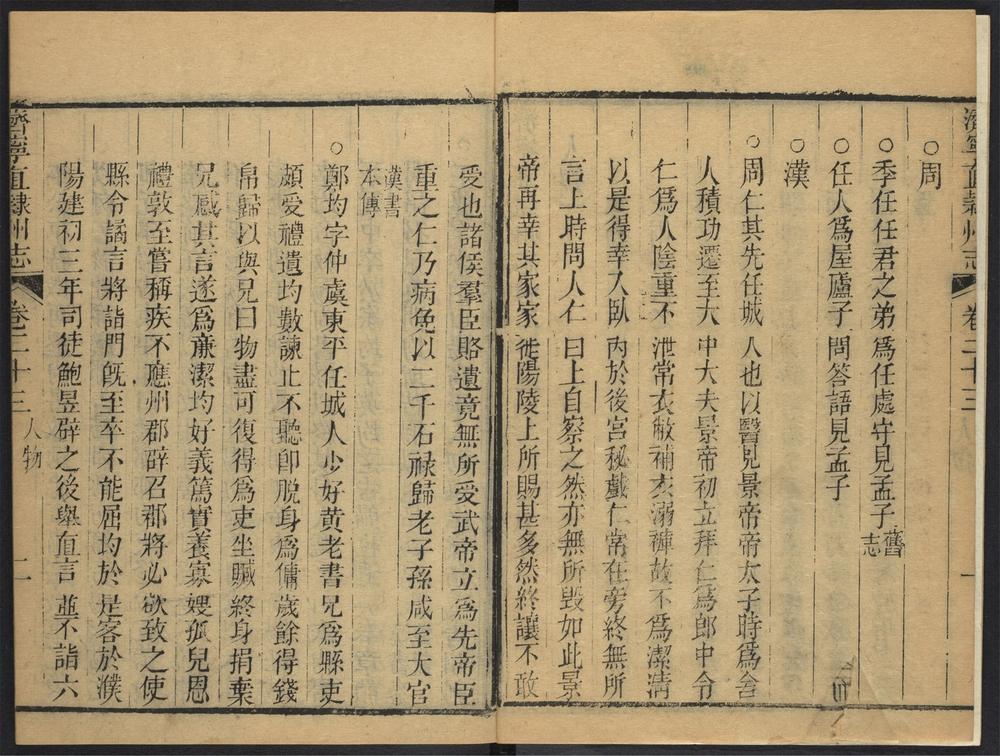 濟寧直隸州志 卷二十三
○周
○季任任君之弟為任處守見孟子舊志
○任人為屋廬子問答語見孟子
○漢
○周仁其先任城人也以醫見景帝帝太子時為舍
人積功遷至太中大夫景帝初立拜仁為郎中令
仁為人陰重不泄常衣敝補衣溺褲故不為潔清
以是得幸入臥內於後宮秘戲仁常在旁終無所
言上時問人仁曰上自察之然亦無所毀如此景
帝再幸其家家徙陽陵上所賜甚多然終讓不敢
受也諸侯羣臣賂遺竟無所受武帝立為先帝臣
重之仁乃病免以二千石祿歸老子孫咸至大官
漢書本傳
○鄭均字仲虞東平任城人少好黃老書兄為縣吏
頗愛禮遺均數諫止不聽卽脫身為傭歲餘得錢
帛歸以與兄曰物盡可復得為吏坐贓終身捐棄
兄感其言遂為亷潔均好義篤實養寡嫂孤兒恩
禮敦至嘗稱疾不應州郡辟召郡將必欲致之使
縣令譎言將詣門旣至卒不能屈均於是客於濮
陽建初三年司徒鮑昱辟之後舉直言並不詣六
濟寧直隸州志 卷二十三 人物 二